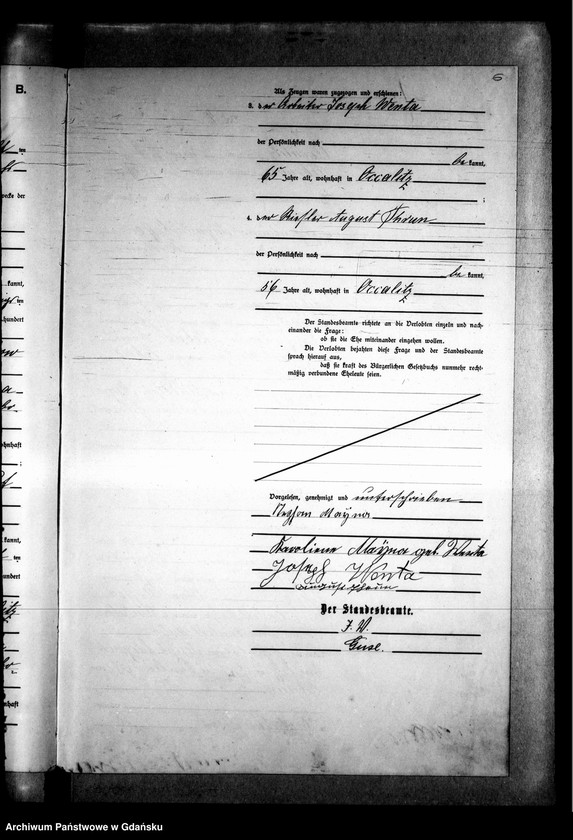 B.
6
Als Zeugen waren zugezogen und erschienen:
3. der Arbeiter Joseph Wenta
der Persönlichkeit nach
be kannt,
65 Jahre alt, wohnhaft in Occalitz
;
4. der August Thrun
der Persönlichkeit nach
be kannt,
56 Jahre alt, wohnhaft in Occalitz
Der Standesbeamte richtete an die Verlobten einzeln und nach-
einander die Frage:
ob sie die Ehe miteinander eingehen wollen.
Die Verlobten bejahten diese Frage und der Standesbeamte
sprach hierauf aus,
daß sie kraft des Bürgerlichen Gesetzbuchs nunmehr recht-
mäßig verbundene Eheleute seien.
Vorgelesen, genehmigt und unterschrieben
Mayna
Karoline Mayna geb. Wenta
Joseph Wenta
August Thrun
Der Standesbeamte.
J. V.
Archiwum Państwowe w Gdańsku